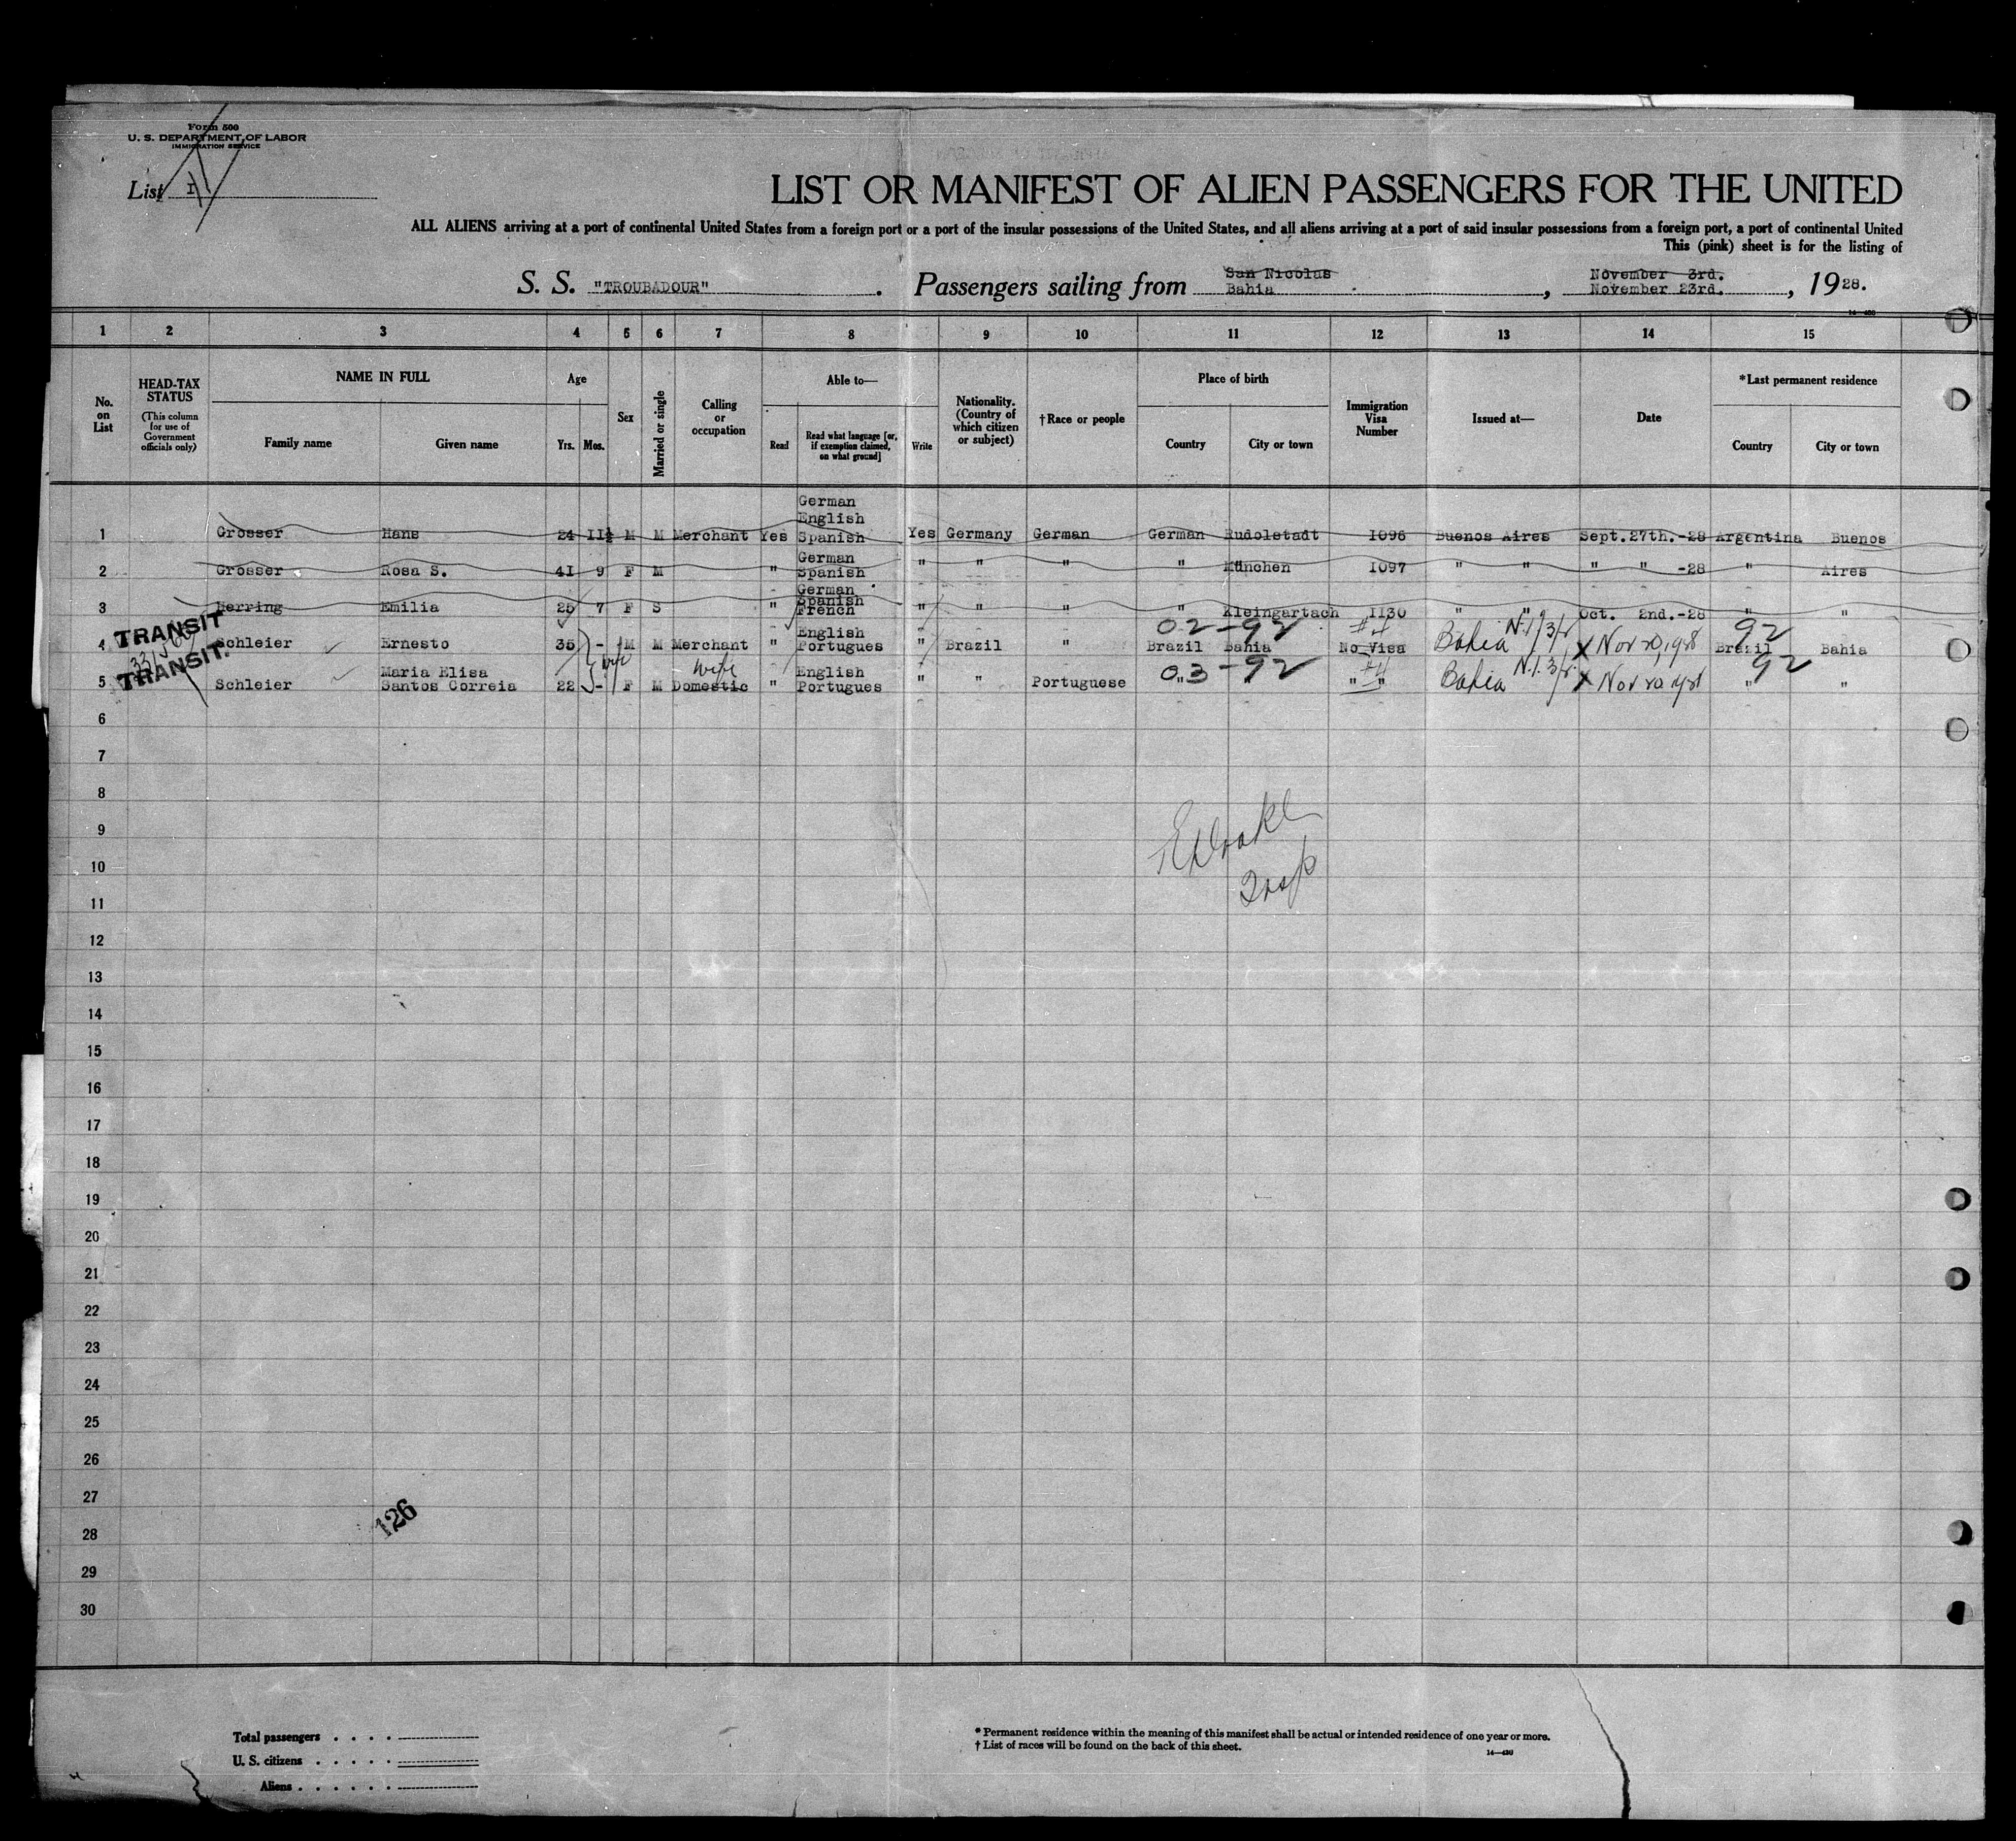 Form 500
U. S. DEPARTMENT OF LABOR
IMMIGRATION SERVICE
List I
LIST OR MANIFEST OF ALIEN PASSENGERS FOR THE UNITED
ALL ALIENS arriving at a port of continental United States from a foreign port or a port of the insular possessions of the United States, and all aliens arriving at a port of said insular possessions from a foreign port, a port of continental United
This (pink) sheet is for the listing of
S. S. "TROUBADOUR". Passengers sailing from San Nicolas Bahia, November 3rd. November 23rd., 1928.
1 2 3 4 5 6 7 8 9 10 11 12 13 14 15
No. on List
HEAD-TAX STATUS (This column for use of Government officials only)
NAME IN FULL
Family name Given name
Age
Yrs. Mos.
Sex
Married or single
Calling or occupation
Able to—
Read
Read what language [or, if exemption claimed, on what ground]
Write
Nationality. (Country of which citizen or subject)
†Race or people
Place of birth
Country City or town
Immigration Visa Number
Issued at—
Date
*Last permanent residence
Country City or town
1 Grosser Hans 24 11½ M M Merchant Yes German English Spanish Yes Germany German German Rudolstadt 1096 Buenos Aires Sept. 27th.-28 Argentina Buenos
2 Grosser Rosa S. 41 9 F M " German Spanish " " " " München 1097 " " " " -28 " Aires
3 Herring Emilia 25 7 F S " German Spanish French " " " " Kleingartach 1130 " " Oct. 2nd.-28 " "
02-92 #4 92
TRANSIT
4 Schleier Ernesto 35 - M M Merchant " English Portugues " Brazil " Brazil Bahia No Visa Bahia Nov 20, 1928 Brazil Bahia
03-92 #4 92
TRANSIT.
5 Schleier Maria Elisa Santos Correia 22 - F M wife Domestic " English Portugues " " Portuguese " " " " Bahia Nov 20 1928 " "
6
7
8
9
10
11
12
13
14
15
16
17
18
19
20
21
22
23
24
25
26
27
126
28
29
30
Total passengers
U. S. citizens
Aliens
* Permanent residence within the meaning of this manifest shall be actual or intended residence of one year or more.
† List of races will be found on the back of this sheet.